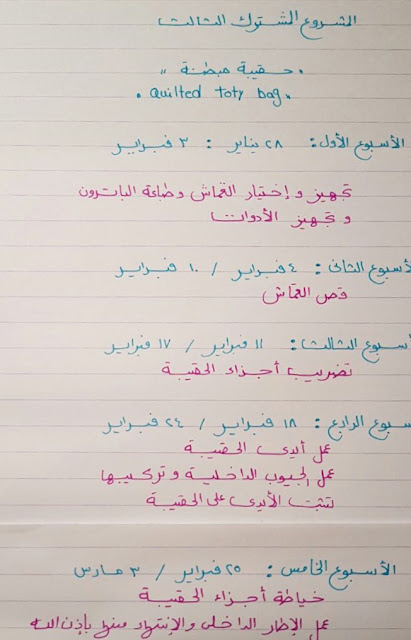 المشروع المشترك الثالث
" حقيبة مبطنة "
. quilted toty bag .
الأسبوع الأول : ٢٨ يناير : ٣ فبراير
تجهيز و إختيار القماش و طباعة الباترون
و تجهيز الأدوات
الأسبوع الثانى : ٤ فبراير / ١٠ فبراير
قص القماش
أسبوع الثالث : ١١ فبراير / ١٧ فبراير
تضريب أجزاء الحقيبة
سبوع الرابع : ١٨ فبراير / ٢٤ فبراير
عمل أيدى الحقيبة
عمل الجيوب الداخلية و تركيبها
تثبت الأيدى على الحقيبة
الأسبوع الخامس : ٢٥ فبراير / ٣ مارس
خياطة أجزاء الحقيبة
عمل الإطار الداخلى و الإنتهاء منها بإذن الله